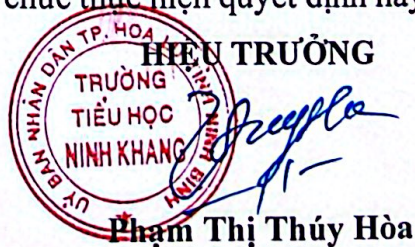 chức thực hiện quyết định này
HIỆU TRƯỞNG
ỦY BAN NHÂN DÂN TP. HOA LƯ TỈNH NINH BÌNH
TRƯỜNG
TIỂU HỌC
NINH KHANG
Phạm Thị Thúy Hòa